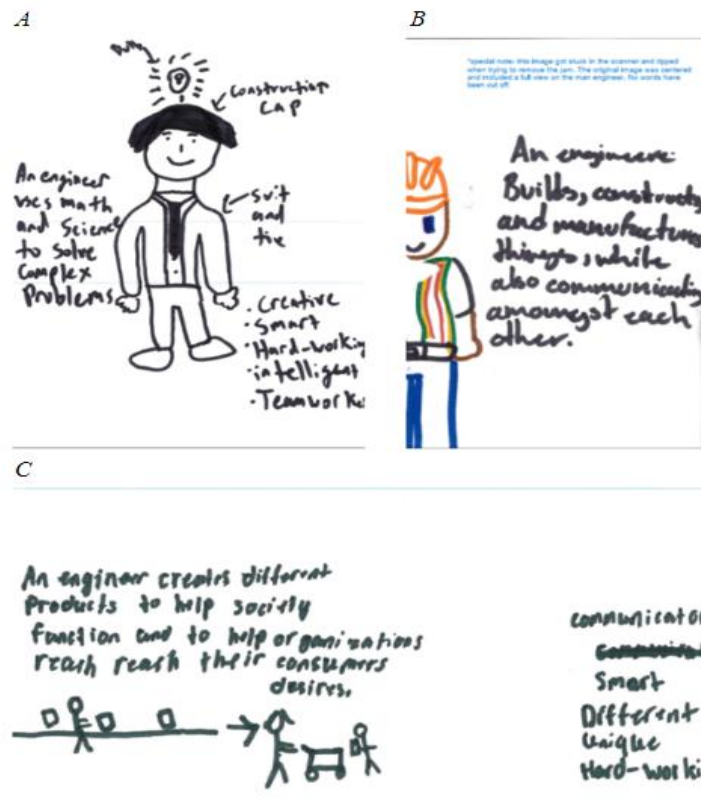 A
Bulb
Construction
Cap
An engineer
uses math
and Science
to solve
Complex
Problems
suit
and
tie
• Creative
• Smart
• Hard-working
• intelligent
• Teamwork
B
*special note: this image got stuck in the scanner and ripped
when trying to remove the jam. The original image was centered
and included a full view on the man engineer. No words have
been cut off.
An engineer:
Builds, constructs
and manufactures
things, while
also communicating
amongst each
other.
C
An engineer creates different
Products to help society
function and to help organizations
reach reach their consumers
desires.
communicato
Smart
Different
Unique
Hard-worki